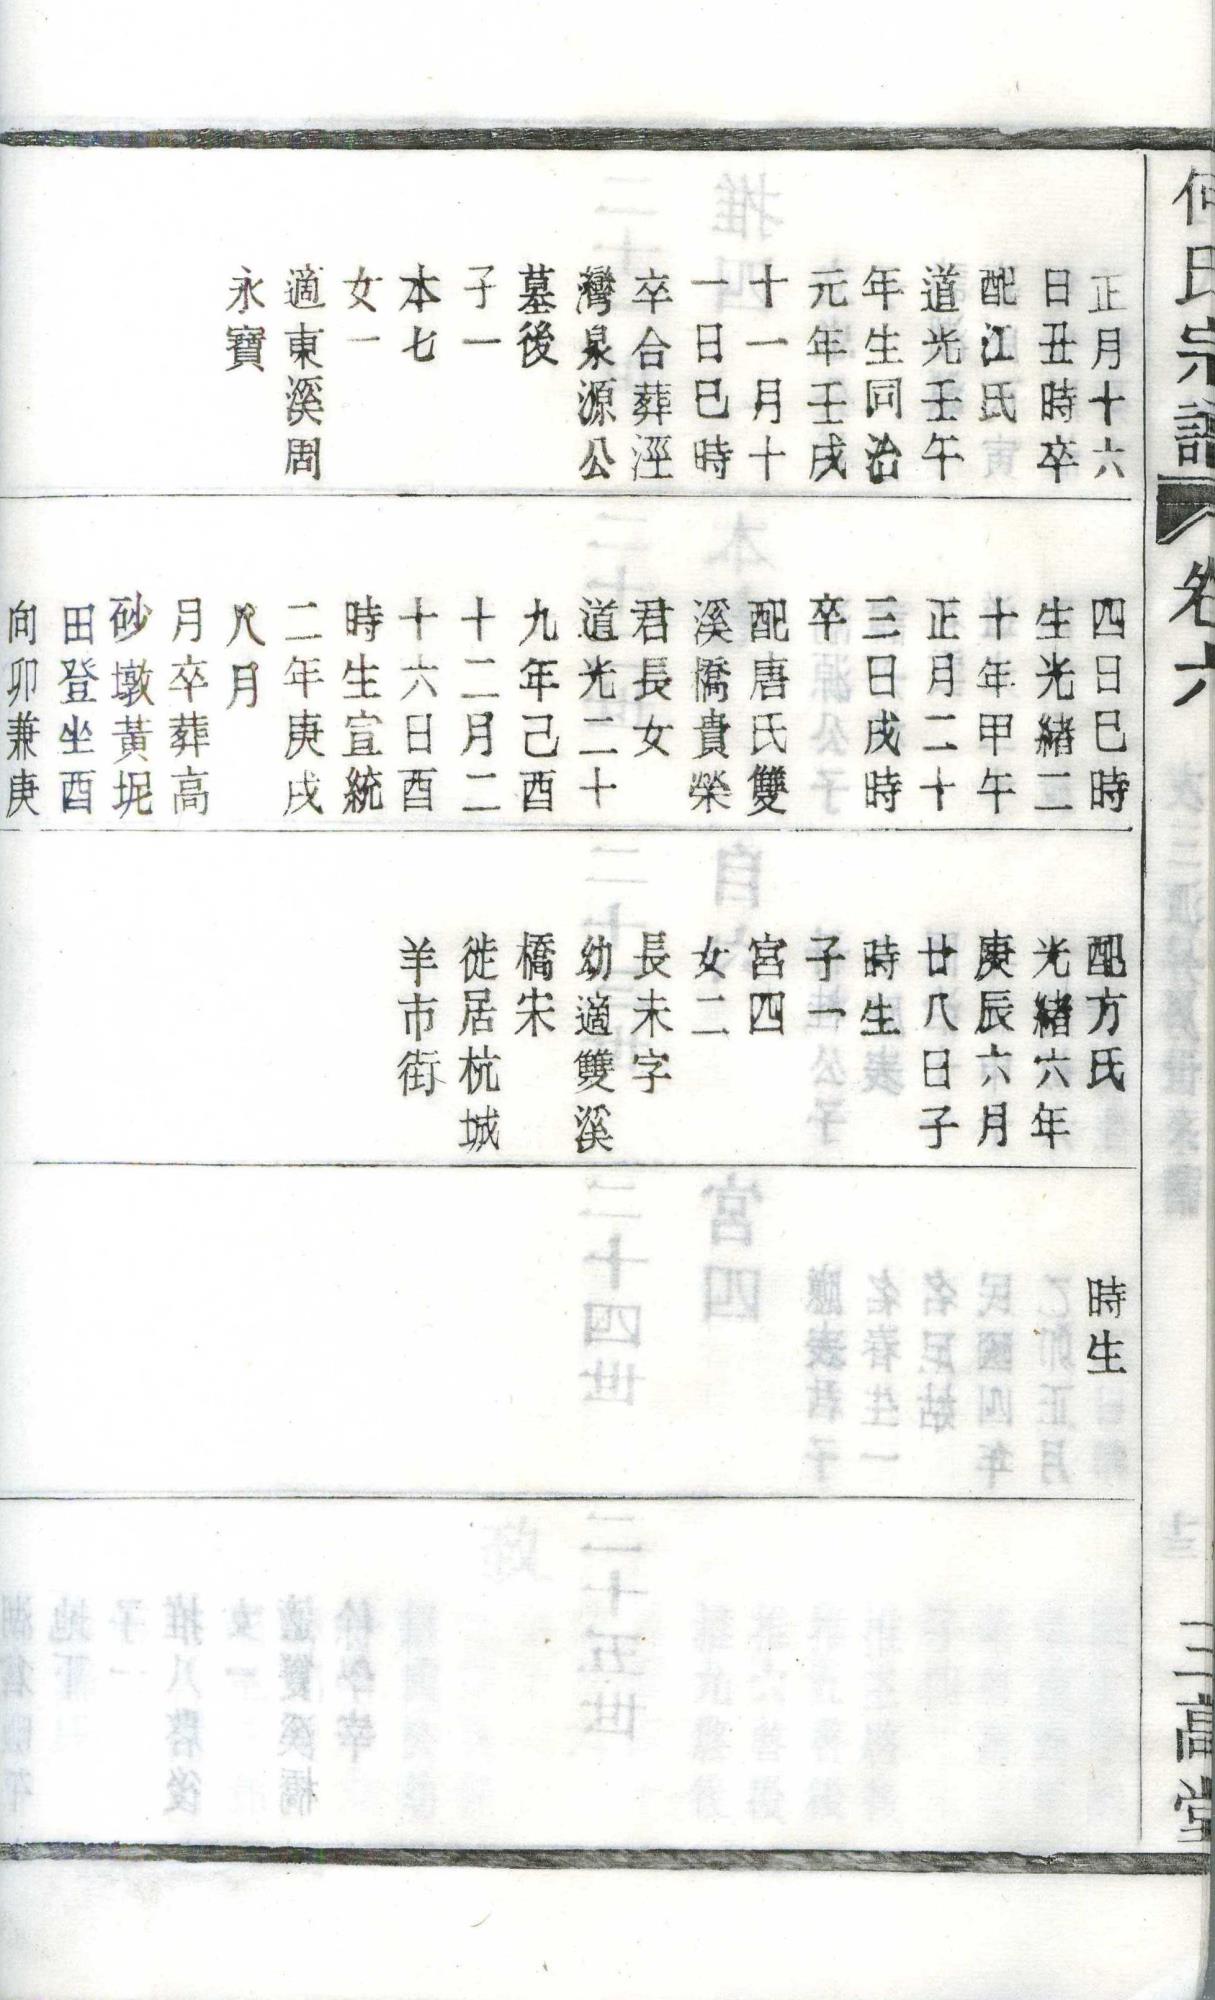 何氏宗譜
卷六
三高堂
正月十六
日丑時卒
配江氏
道光壬午
年生同治
元年壬戌
十一月十
一日巳時
卒合葬涇
灣泉源公
墓後
子一
本七
女一
適東溪周
永寶
四日巳時
生光緒二
十年甲午
正月二十
三日戌時
卒
配唐氏雙
溪橋貴榮
君長女
道光二十
九年己酉
十二月二
十六日酉
時生宣統
二年庚戌
八月
月卒葬高
砂墩黃坭
田登坐酉
向卯兼庚
配方氏
光緒六年
庚辰六月
廿八日子
時生
子一
宮四
女二
長未字
幼適雙溪
橋宋
徙居杭城
羊市街
時生